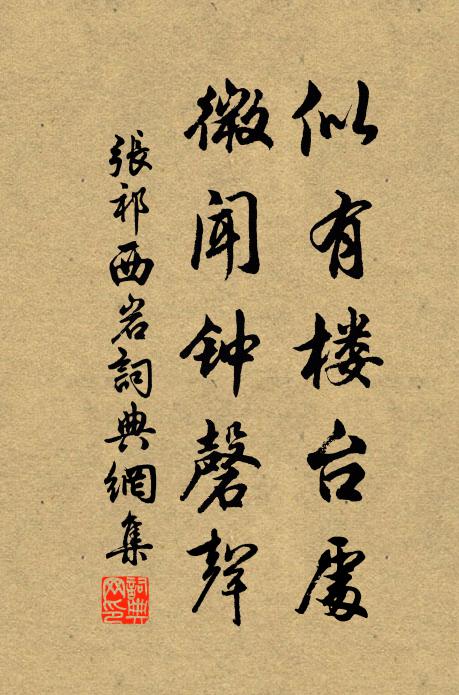 似有楼台處
微闻钟磬聲
張祁西岩詞典網集
詞典网印